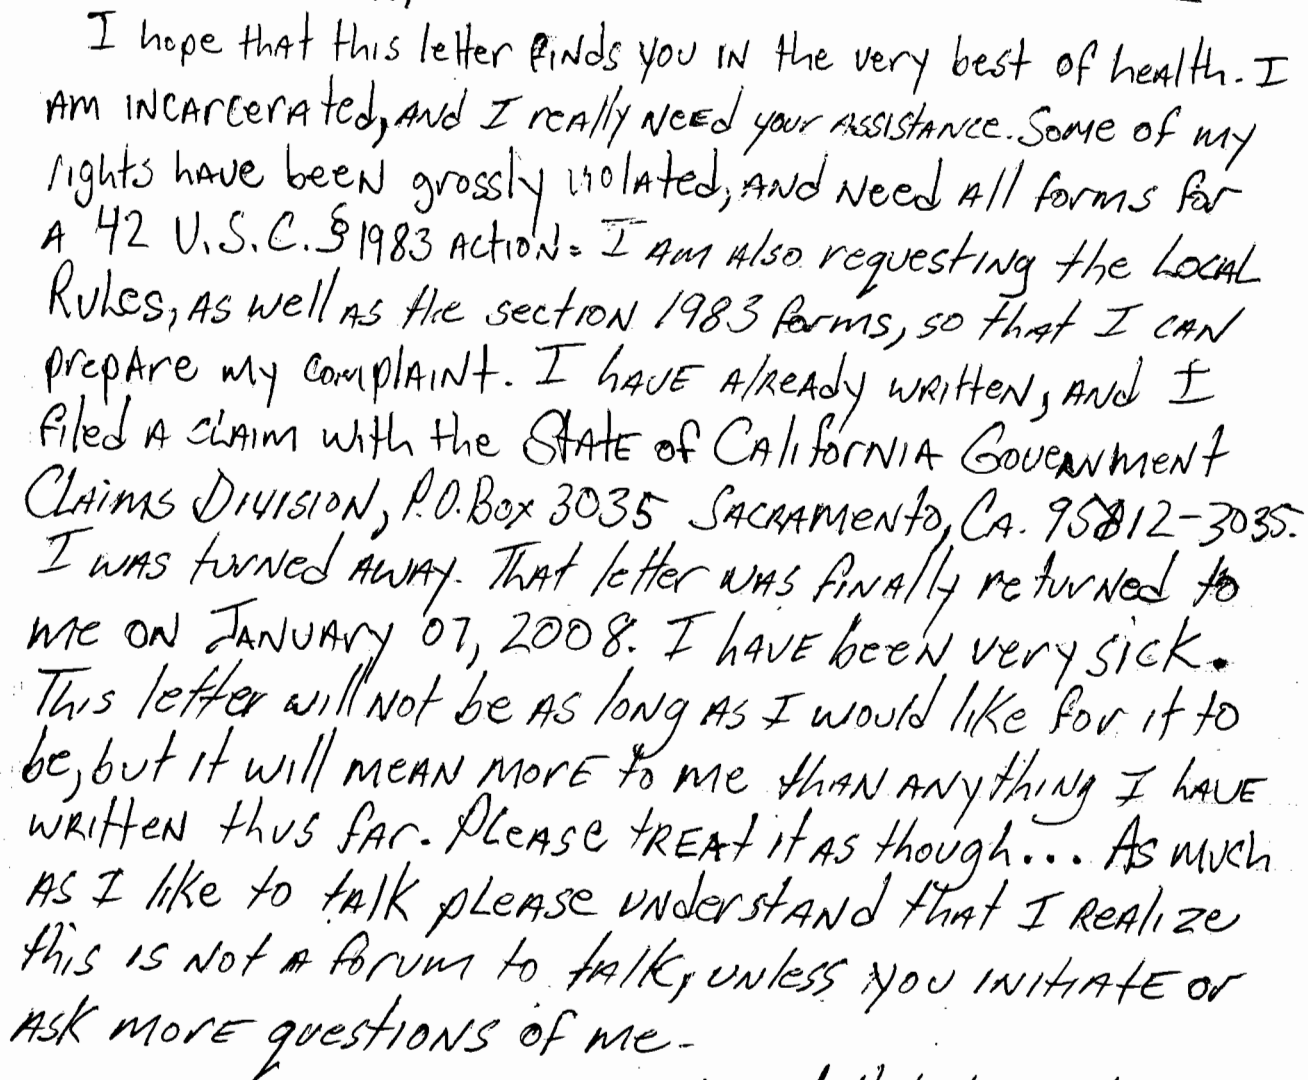 I hope that this letter finds you in the very best of health. I
am incarcerated, and I really need your assistance. Some of my
rights have been grossly violated, and need all forms for
a 42 U.S.C. § 1983 action. I am also requesting the Local
Rules, as well as the section 1983 forms, so that I can
prepare my complaint. I have already written, and I
filed a claim with the State of California Government
Claims Division, P.O. Box 3035 Sacramento, CA. 95812-3035.
I was turned away. That letter was finally returned to
me on January 07, 2008. I have been very sick.
This letter will not be as long as I would like for it to
be, but it will mean more to me than anything I have
written thus far. Please treat it as though... As much
as I like to talk please understand that I realize
this is not a forum to talk, unless you initiate or
ask more questions of me.